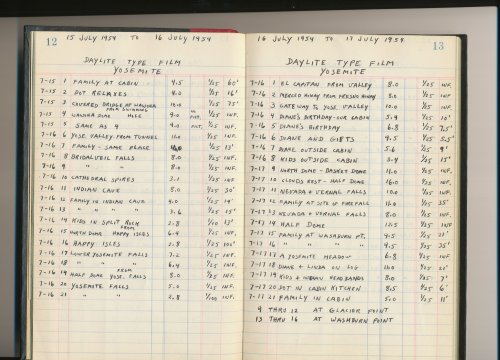 12
15 JULY 1954 TO 16 JULY 1954
DAYLITE TYPE FILM
YOSEMITE
7-15 1 FAMILY AT CABIN 4.5 1/25 60'
7-15 2 DOT RELAXES 4.0 1/25 16'
7-15 3 COVERED BRIDGE AT WAWONA 10.0 1/25 75'
FROM SWIMMING
7-15 4 WAWONA DAM HOLE 4.0 1/25 INF.
7-15 5 SAME AS 4 4.0 1/25 INF.
7-16 6 YOSE VALLEY FROM TUNNEL 11.0 1/25 INF.
7-16 7 FAMILY - SAME PLACE 1/25 13'
7-16 8 BRIDALVEIL FALLS 8.0 1/25 INF.
7-16 9 " " 8.0 1/25 INF.
7-16 10 CATHEDRAL SPIRES 3.1 1/25 INF.
7-16 11 INDIAN CAVE 8.0 1/25 30'
7-16 12 FAMILY IN INDIAN CAVE 4.0 1/25 14'
7-16 13 " " " 3.6 1/25 15'
7-16 14 KIDS IN SPLIT ROCK 2.8 1/50 13'
FROM
7-16 15 NORTH DOME HAPPY ISLES 6.4 1/25 INF.
7-16 16 HAPPY ISLES 2.8 1/25 100'
7-16 17 LOWER YOSEMITE FALLS 7.2 1/25 INF.
7-16 18 " " " 6.4 1/25 INF.
FROM
7-16 19 HALF DOME YOSE. FALLS 8.0 1/25 INF.
7-16 20 YOSEMITE FALLS 5.0 1/25 INF.
7-16 21 " " 2.8 1/100 INF.
16 JULY 1954 TO 17 JULY 1954
13
DAYLITE TYPE FILM
YOSEMITE
7-16 1 EL CAPITAN FROM VALLEY 8.0 1/25 INF.
7-16 2 MERCED RIVER FROM 1/25 INF.
7-16 3 GATEWAY TO YOSE. VALLEY 10.0 1/25 INF.
7-16 4 DIANE'S BIRTHDAY - OUR CABIN 5.9 1/25 10'
7-16 5 DIANE'S BIRTHDAY 6.3 1/25 7.5'
7-16 6 DIANE AND GIFTS 4.5 1/25 5.5'
7-16 7 DIANE OUTSIDE CABIN 5.6 1/25 9'
7-16 8 KIDS OUTSIDE CABIN 3.4 1/25 15'
7-17 9 NORTH DOME - BASKET DOME 11.0 1/25 INF.
7-17 10 CLOUDS REST - HALF DOME 16.0 1/25 INF.
7-17 11 NEVADA + VERNAL FALLS 10.0 1/25 INF.
7-17 12 FAMILY AT SITE OF FIREFALL 11.0 1/25 35'
7-17 13 NEVADA + VERNAL FALLS 8.0 1/25 INF.
7-17 14 HALF DOME 12.5 1/25 INF.
7-17 15 FAMILY AT WASHBURN PT. 4.5 1/25 21'
7-17 16 " " " 4.5 1/25 35'
7-17 17 A YOSEMITE MEADOW 6.8 1/25 INF.
7-17 18 DIANE + LINDA ON LOG 11.0 1/25 20'
7-17 19 KIDS + INDIAN HEADBANDS 8.0 1/25 7'
7-17 20 DOT IN CABIN KITCHEN 8.5 1/25 6'
7-17 21 FAMILY IN CABIN 5.0 1/25 11'
9 THRU 12 AT GLACIER POINT
13 THRU 16 AT WASHBURN POINT